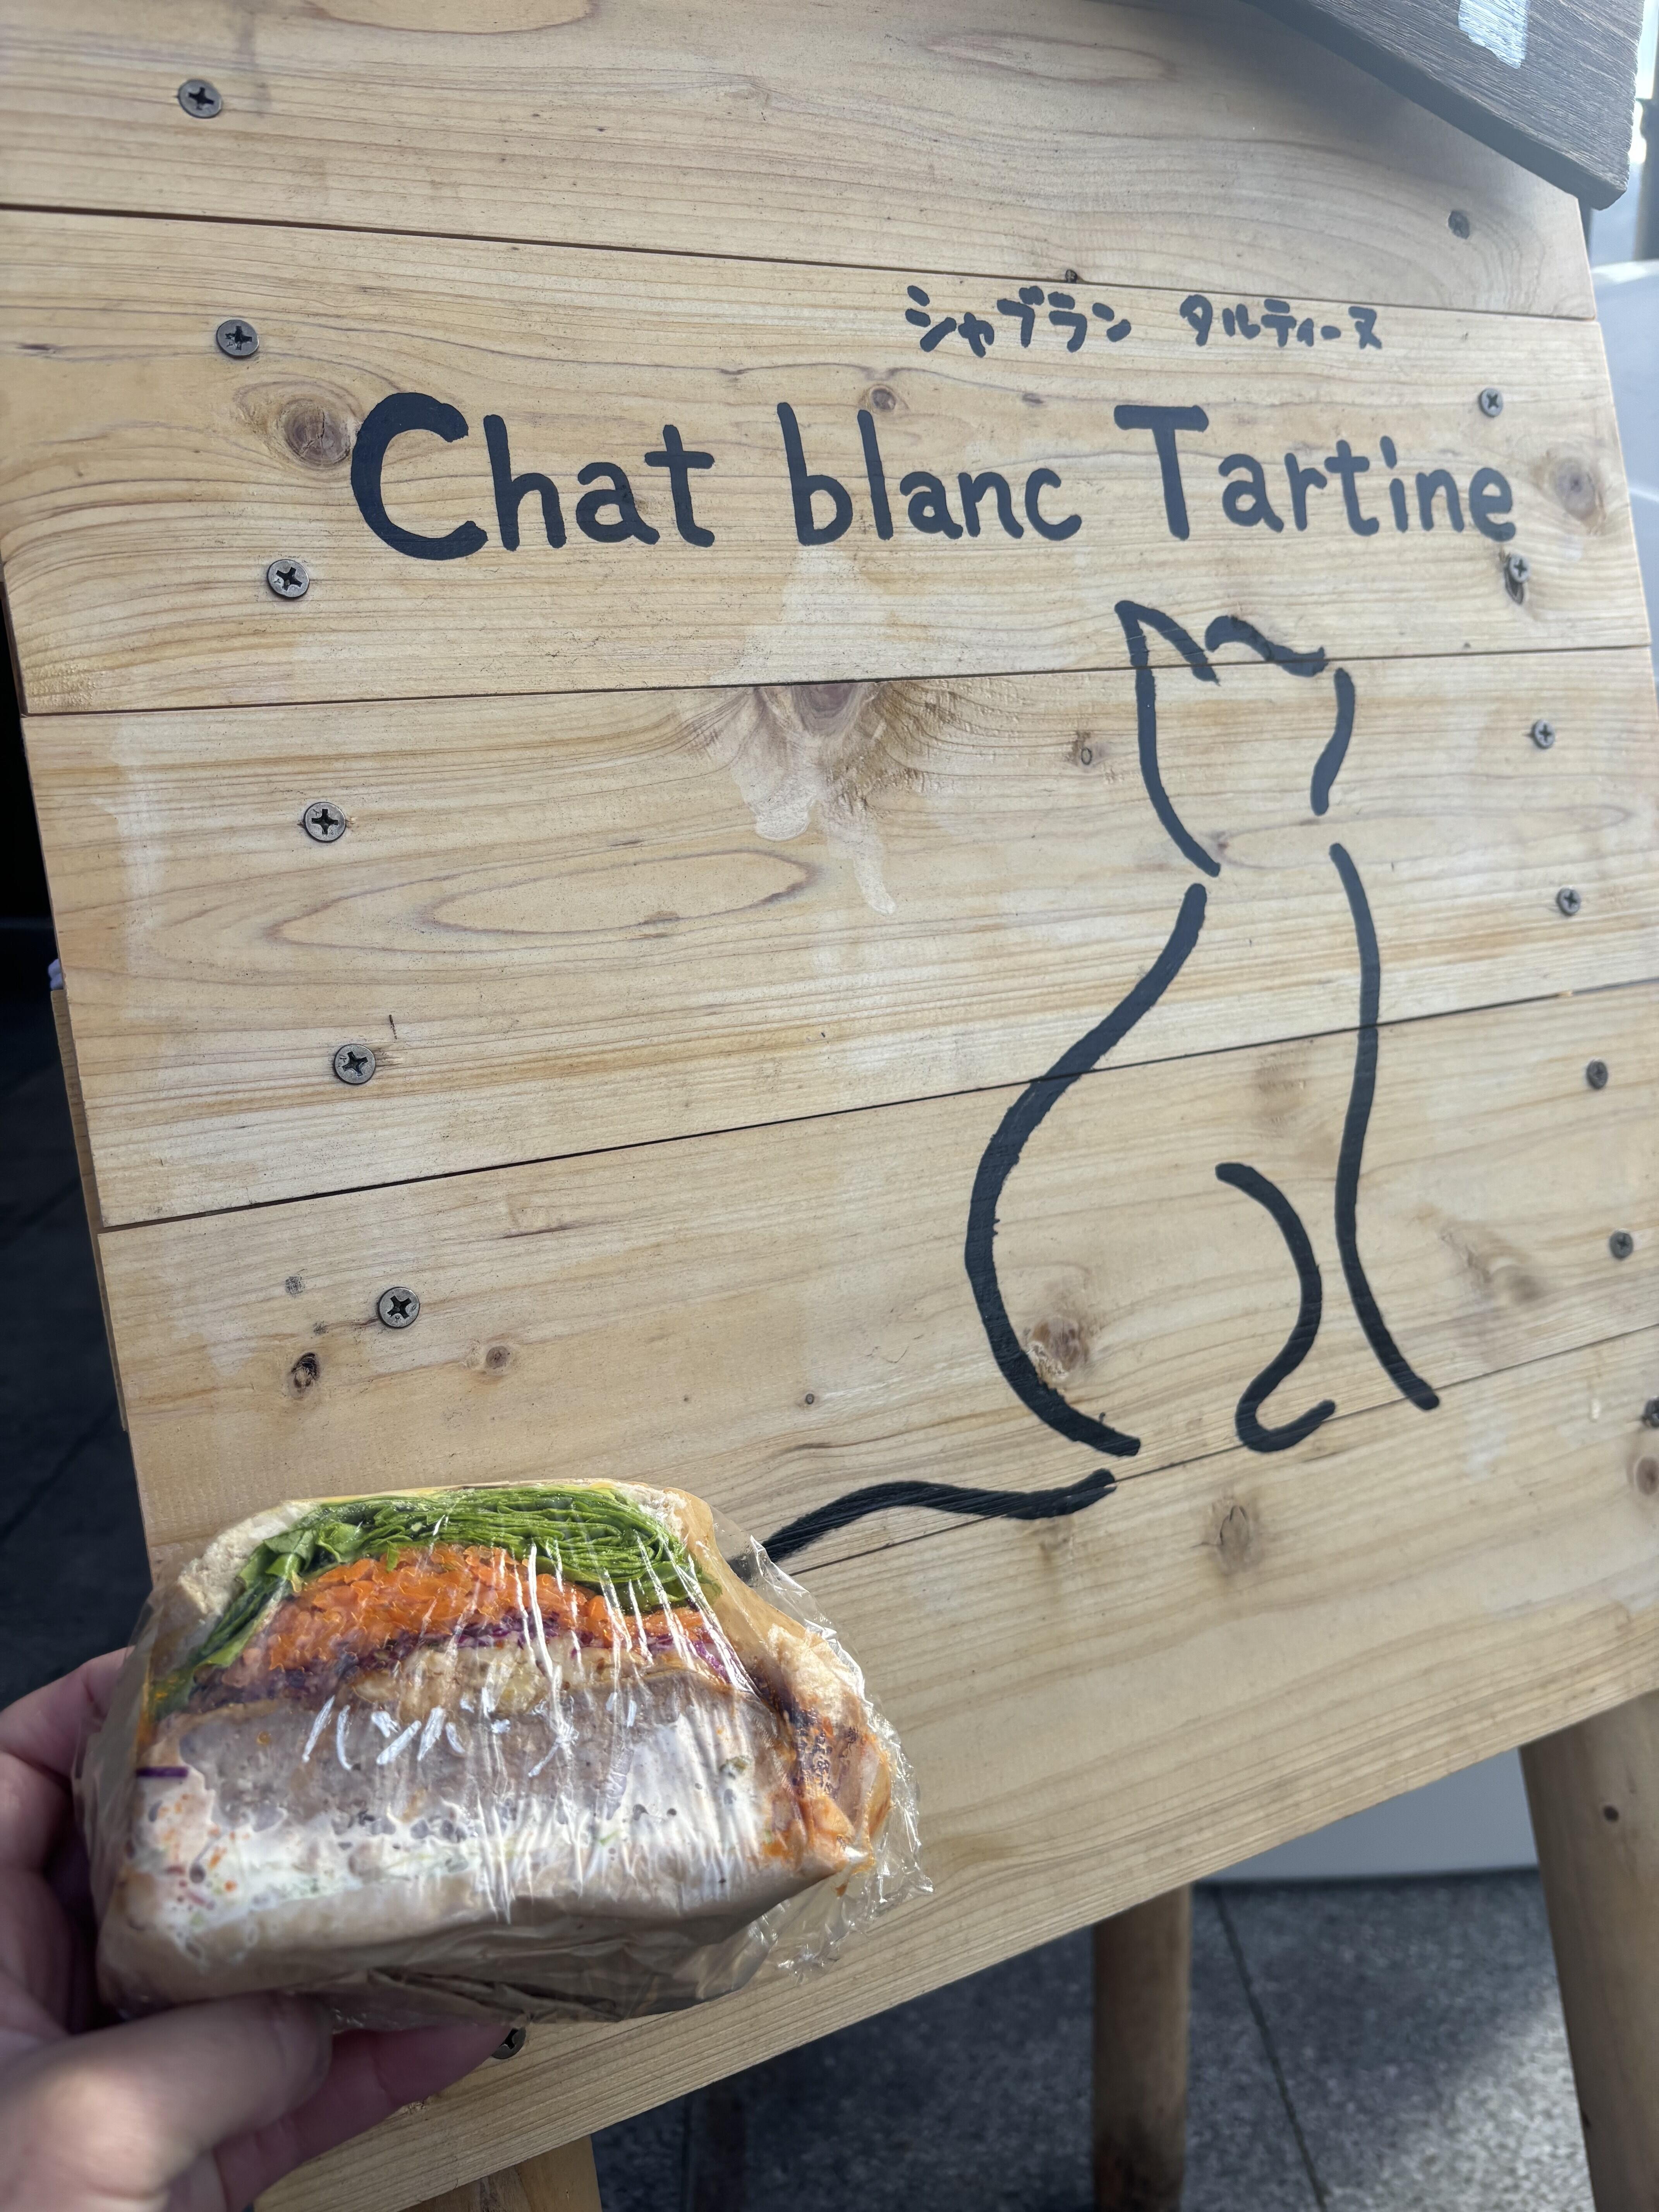 シャブラン タルティーヌ
Chat blanc Tartine
ハンバーグ